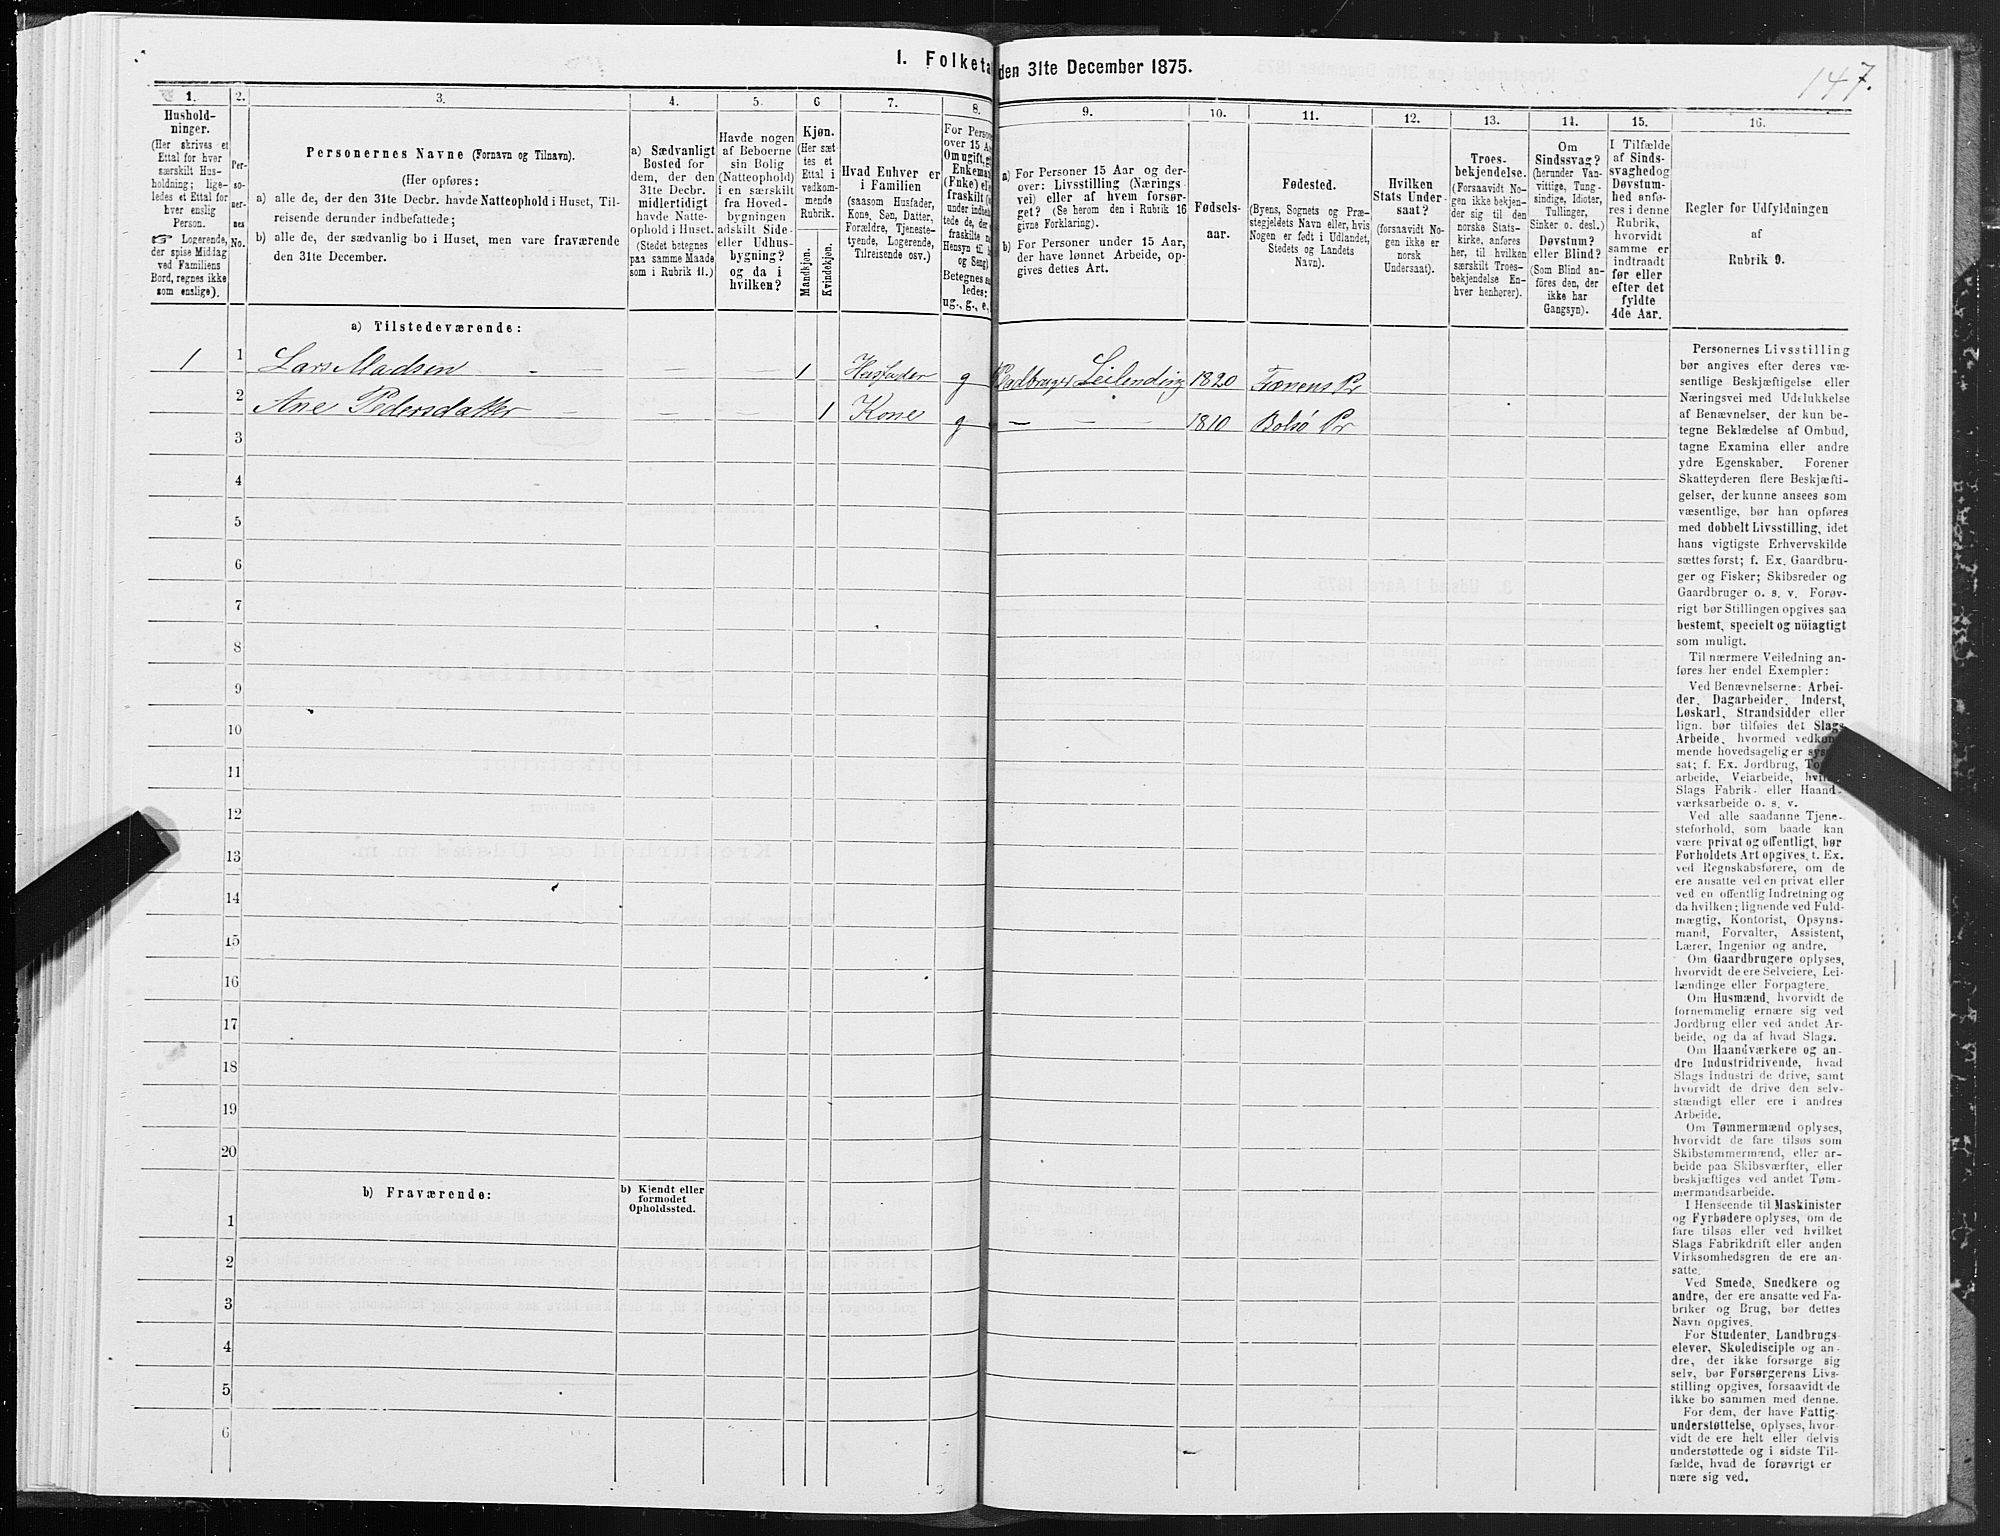 I. Folketa den 31te December 1875.
147.
1.
Hushold-
ninger.
(Her skrives et
Ettal for hver
særskilt Hus-
holdning; lige-
ledes et Ettal for
hver enslig
Person.
☞ Logerende,
der spise Middag
ved Familiens
Bord, regnes ikke
som enslige).
2.
Per-
so-
ner-
nes
No.
3.
Personernes Navne (Fornavn og Tilnavn).
(Her opføres:
a) alle de, der den 31te Decbr. havde Natteophold i Huset, Til-
reisende derunder indbefattede;
b) alle de, der sædvanlig bo i Huset, men vare fraværende
den 31te December.
4.
a) Sædvanligt
Bosted for
dem, der den
31te Decbr.
midlertidigt
havde Natte-
ophold i Huset.
(Stedet betegnes
paa samme Maade
som i Rubrik 11.)
5.
Havde nogen
af Beboerne
sin Bolig
(Natteophold)
i en særskilt
fra Hoved-
bygningen
adskilt Side-
eller Udhus-
bygning?
og da i
hvilken?
6
Kjøn.
(Her sæt-
tes et
Ettal i
vedkom-
mende
Rubrik.
Mandkjøn.
Kvindekjøn.
7.
Hvad Enhver er
i Familien
(saasom Husfader,
Kone, Søn, Datter,
Forældre, Tjeneste-
tyende, Logerende,
Tilreisende osv.)
8.
For Persone
over 15 Aa
Om ugift, g
Enkeman
(Enke) el
fraskilt (
under indbe
tede de, der
fraskilte
Hensyn til
og Seng)
Betegnes sa
ledes:
ug., g., e.,
9.
a) For Personer 15 Aar og der-
over: Livsstilling (Nærings-
vei) eller af hvem forsør-
get? (Se herom den i Rubrik 16
givne Forklaring).
b) For Personer under 15 Aar,
der have lønnet Arbeide, op-
gives dettes Art.
10.
Fødsels-
aar.
11.
Fødested.
(Byens, Sognets og Præ-
stegjeldets Navn eller, hvis
Nogen er født i Udlandet,
Stedets og Landets
Navn).
12.
Hvilken
Stats Under-
saat?
(forsaavidt No-
gen ikke er
norsk
Undersaat).
13.
Troes-
bekjendelse.
(Forsaavidt No-
gen ikke bekjen-
der sig til den
norske Stats-
kirke, anføres
her, til hvilken
særskilt Troes-
bekjendelse En-
hver henhører).
14.
Om
Sindssvag?
(herunder Van-
vittige, Tung-
sindige, Idioter,
Tullinger,
Sinker o. desl.)
Døvstum?
eller Blind?
(Som Blind an-
føres den, der
ikke har
Gangsyn).
15.
I Tilfælde
af Sinds-
svaghed og
Døvstum-
hed anfø-
res i denne
Rubrik,
hvorvidt
samme er
indtraadt
før eller
efter det
fyldte
4de Aar.
16.
Regler for Udfyldningen
af
Rubrik 9.
a) Tilstedeværende:
1 1 Lars Madsen - — — — 1 Husfader g Gardbruger Leilending 1820 Frænens Pr
2 Ane Pedersdatter — — — 1 Kone g — — — 1810 Bolsø Pr
3
4
5
6
7
8
9
10
11
12
13
14
15
16
17
18
19
20
b) Fraværende:
b) Kjendt eller
formodet
Opholdssted.
1
2
3
4
5
6
Personernes Livsstilling
bør angives efter deres væ-
sentlige Beskjæftigelse eller
Næringsvei med Udelukkelse
af Benævnelser, der kun be-
tegne Beklædelse af Ombud,
tagne Examina eller andre
ydre Egenskaber. Forener
Skatteyderen flere Beskjæfti-
gelser, der kunne ansees som
væsentlige, bør han opføres
med dobbelt Livsstilling, idet
hans vigtigste Erhvervskilde
sættes først; f. Ex. Gaardbru-
ger og Fisker; Skibsreder og
Gaardbruger o. s. v. Forøv-
rigt bør Stillingen opgives saa
bestemt, specielt og nöiagtigt
som muligt.
Til nærmere Veiledning an-
føres her endel Exempler:
Ved Benævnelserne: Arbei-
der, Dagarbeider, Inderst,
Løskarl, Strandsidder eller
lign. bør tilføies det Slags
Arbeide, hvormed vedkom-
mende hovedsagelig er syssel-
sat; f. Ex. Jordbrug, To
arbeide, Veiarbeide, hvil
Slags Fabrik- eller Haand-
værksarbeide o. s. v.
Ved alle saadanne Tjene-
steforhold, som baade kan
være privat og offentligt, bør
Forholdets Art opgives, t. Ex.
ved Regnskabsførere, om de
ere ansatte ved en privat eller
ved en offentlig Indretning og
da hvilken; lignende ved Fuld-
mægtig, Kontorist, Opsyns-
mand, Forvalter, Assistent,
Lærer, Ingeniør og andre.
Om Gaardbrugere oplyses,
hvorvidt de ere Selveiere, Lei-
lændinge eller Forpagtere.
Om Husmænd, hvorvidt de
fornemmelig ernære sig ved
Jordbrug eller ved andet Ar-
beide, og da af hvad Slags.
Om Haandværkere og an-
dre Industridrivende, hvad
Slags Industri de drive, samt
hvorvidt de drive den selv-
stændigt eller ere i andres
Arbeide.
Om Tømmermænd oplyses,
hvorvidt de fare tilsøs som
Skibstømmermænd, eller ar-
beide paa Skibsværfter, eller
beskjæftiges ved andet Tøm-
mermandsarbeide.
I Henseende til Maskinister
og Fyrbødere oplyses, om de
fare tilsøs eller ved hvilket
Slags Fabrikdrift eller anden
Virksomhedsgren de ere an-
satte.
Ved Smede, Snedkere og
andre, der ere ansatte ved Fa-
briker og Brug, bør dettes
Navn opgives.
For Studenter, Landbrugs-
elever, Skoledisciple og an-
dre, der ikke forsørge sig
selv, bør Forsørgerens Livs-
stilling opgives, forsaavidt de
ikke bo sammen med denne.
For dem, der have Fattig-
understøttelse, oplyses, hvor-
vidt de ere helt eller delvis
understøttede og i sidste Til-
fælde, hvad de forøvrigt er
nære sig ved.